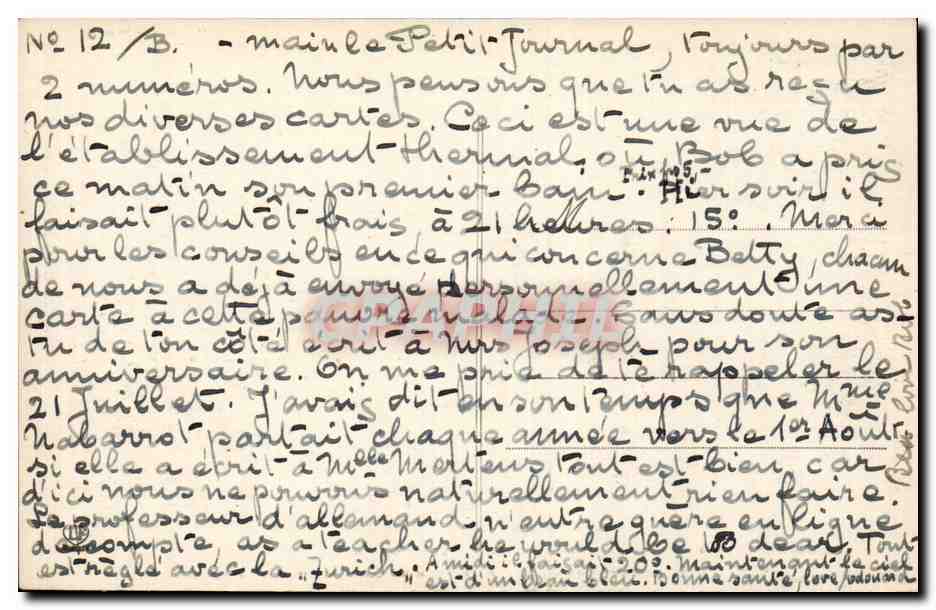 No 12/B. - main le Petit-Journal, toujours par
2 numéros. Nous pensons que tu as reçu
nos diverses cartes. Ceci est une vue de
l'établissement thermal où Bob a pris
ce matin son premier bain. Hier soir il
faisait plutôt frais, à 21 heures: 15°. Merci
pour les conseils en ce qui concerne Betty, chacun
de nous a déjà envoyé personnellement une
carte à cette pauvre malade. Sans doute as-
tu de ton côté écrit à Mrs Joseph pour son
anniversaire. On me prie de te rappeler le
21 Juillet. J'avais dit en son temps que Mme
Nabarrot partait chaque année vers le 1er Août
si elle a écrit à Mlle Mertens tout est bien, car
d'ici nous ne pouvons naturellement rien faire.
Le professeur d'allemand n'entre guère en ligne
de compte, as a teacher he would be too dear. Tout
est réglé avec la "Zurich". A midi il faisait 20°. Maintenant le ciel
est d'un beau bleu. Bonne santé, love, Edouard
GRAPHIL